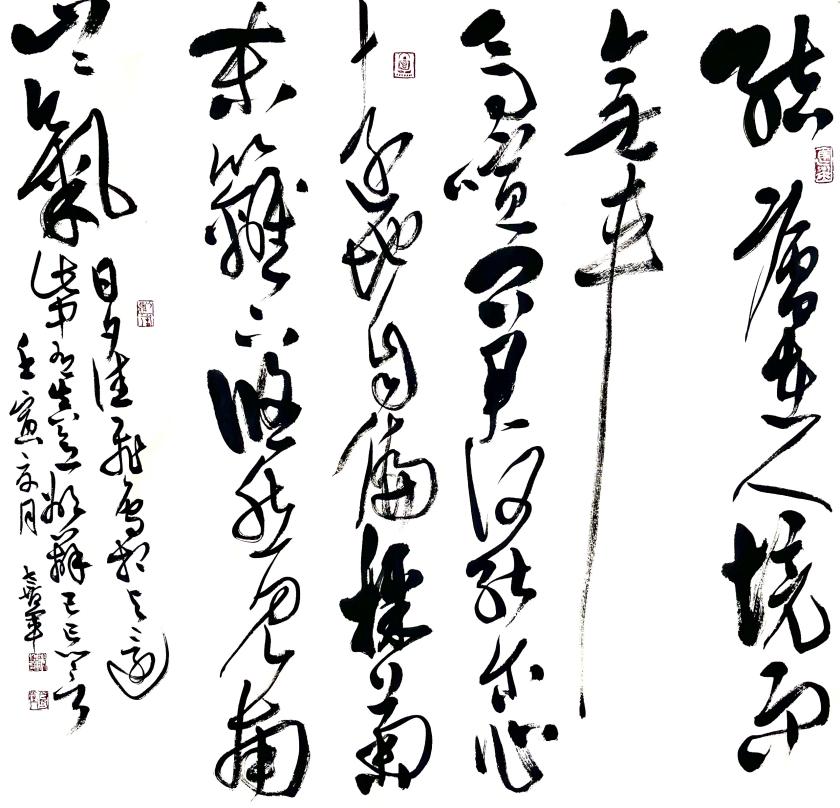 結廬在人境而
無車
馬喧問君何能尔心
遠地自偏採菊
東籬下悠然見南
山山氣
日夕佳飛鳥相与還
此中有真意欲辨已忘言
壬寅 月 軍